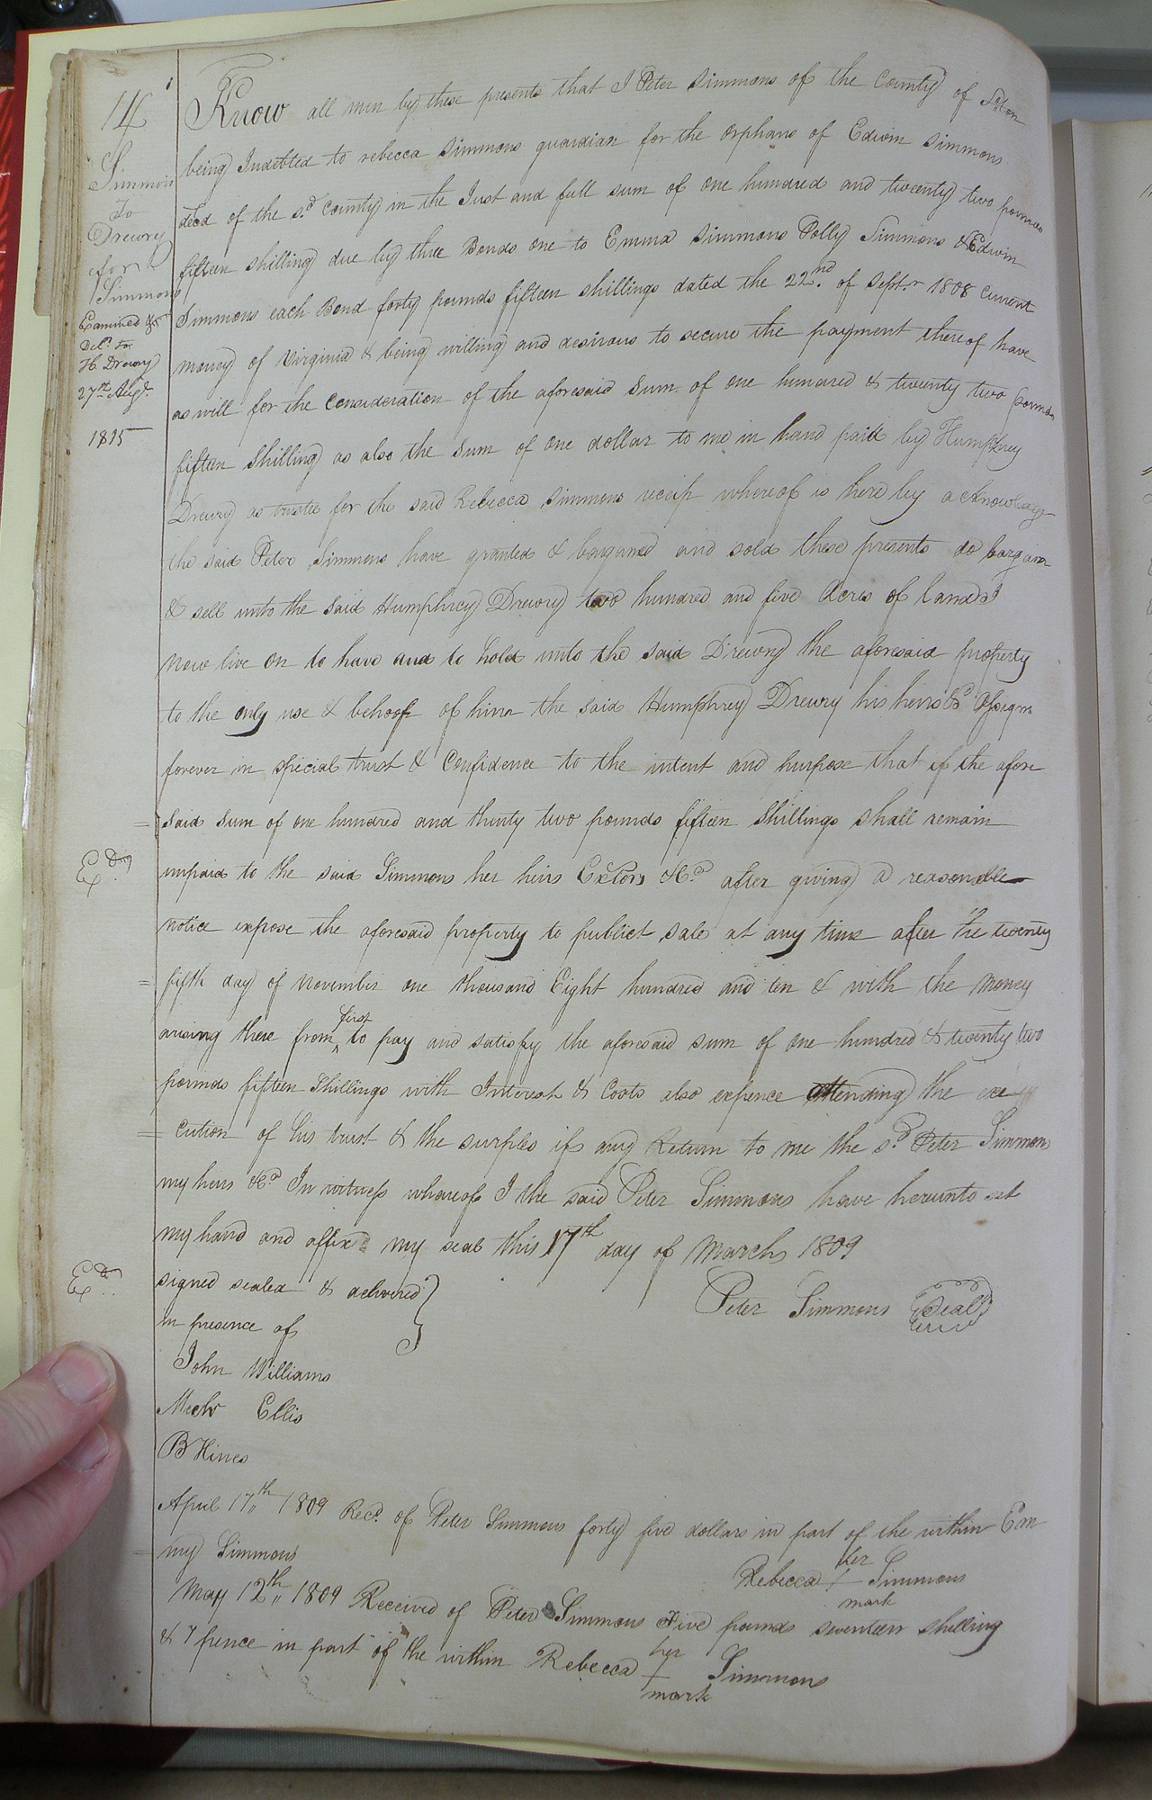 14
Simmons
To
Drewry
for
Simmons
Examined &
Del.d to
H. Drewry
27th Augt.
1815
Know all men by these presents that I Peter Simmons of the County of Soton
being Indebted to rebecca Simmons guardian for the orphans of Edwin Simmons
decd of the sd County in the Just and full sum of one hundred and tweenty two pounds
fifteen shilling due by three Bonds one to Emma Simmons Polly Simmons & Edwin
Simmons each Bond forty pounds fifteen shillings dated the 22nd. of Septr 1808 Current
money of Virginia & being willing and desirous to secure the payment thereof have
as will for the Consideration of the aforesaid Sum of one hundred & tweenty two pounds
fifteen Shilling as also the sum of one dollar to me in hand paid by Humphrey
Drewry as trustee for the said Rebecca Simmons receip whereof is here by acknowlage
the said Peter Simmons have granted & bargained and sold these presents do bargain
& sell unto the said Humphrey Drewry two hundred and five Acres of land I
now live on to have and to hold unto the said Drewry the aforesaid property
to the only use & behoof of him the said Humphrey Drewry his heirs &c Assigns
forever in special trust & Confidence to the intent and purpose that if the afore
said sum of one hundred and thirty two pounds fifteen Shillings shall remain
Ed
unpaid to the said Simmons her heirs Extors &Ca after giving a reasonable
notice expose the aforesaid property to publict sale at any time after the twenty
fifth day of November one thousand Eight hundred and ten & with the money
arising there from first to pay and satisfy the aforesaid sum of one hundred & twenty two
pounds fifteen Shillings with Interest & Costs also expence attending the exe
cution of his trust & the surples if any Return to me the sd Peter Simmons
my heirs &Ca In witness whareof I the said Peter Simmons have hereunto set
my hand and affixd my seal this 17th day of March 1809
Ed
signed sealed & delivered
in presence of
Peter Simmons Seal
John Williams
Mich Ellis
B Hines
April 17th 1809 Recd. of Peter Simmons forty five dollars in part of the within Em
my Simmons
Rebecca her + mark Simmons
May 12th 1809 Received of Peter Simmons Five pounds seventeen shilling
& 7 pence in part of the within Rebecca her + mark Simmons